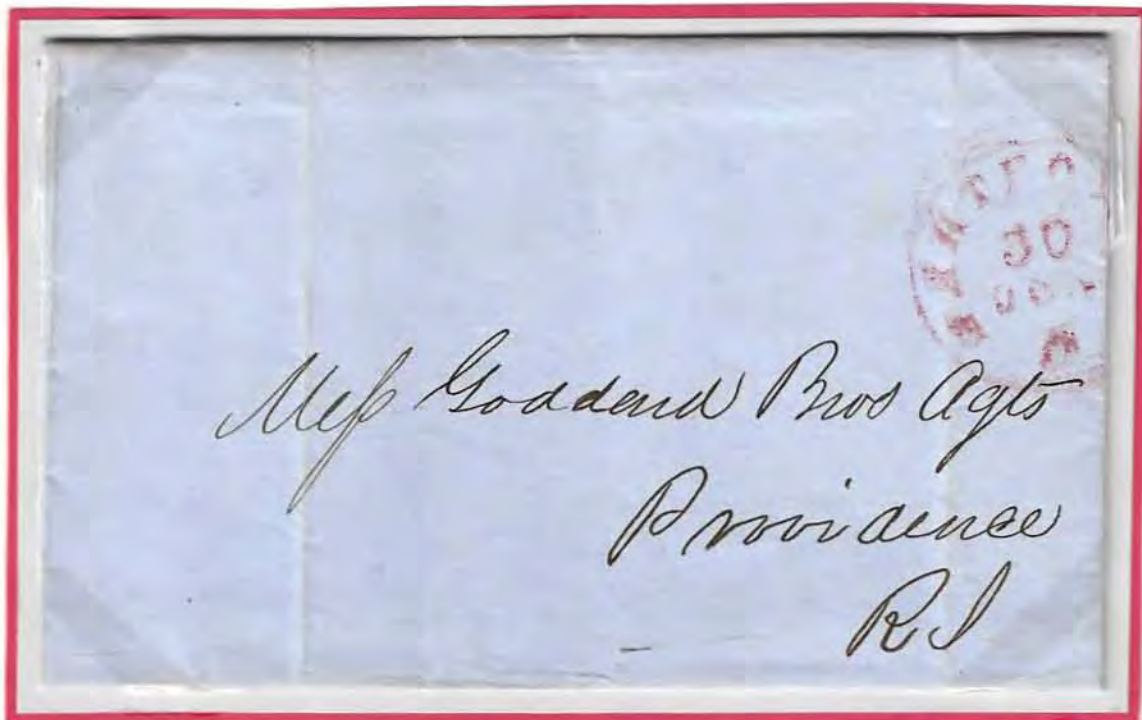 HARTFO
30
Mess Goddard Bros Agts
Providence
R I